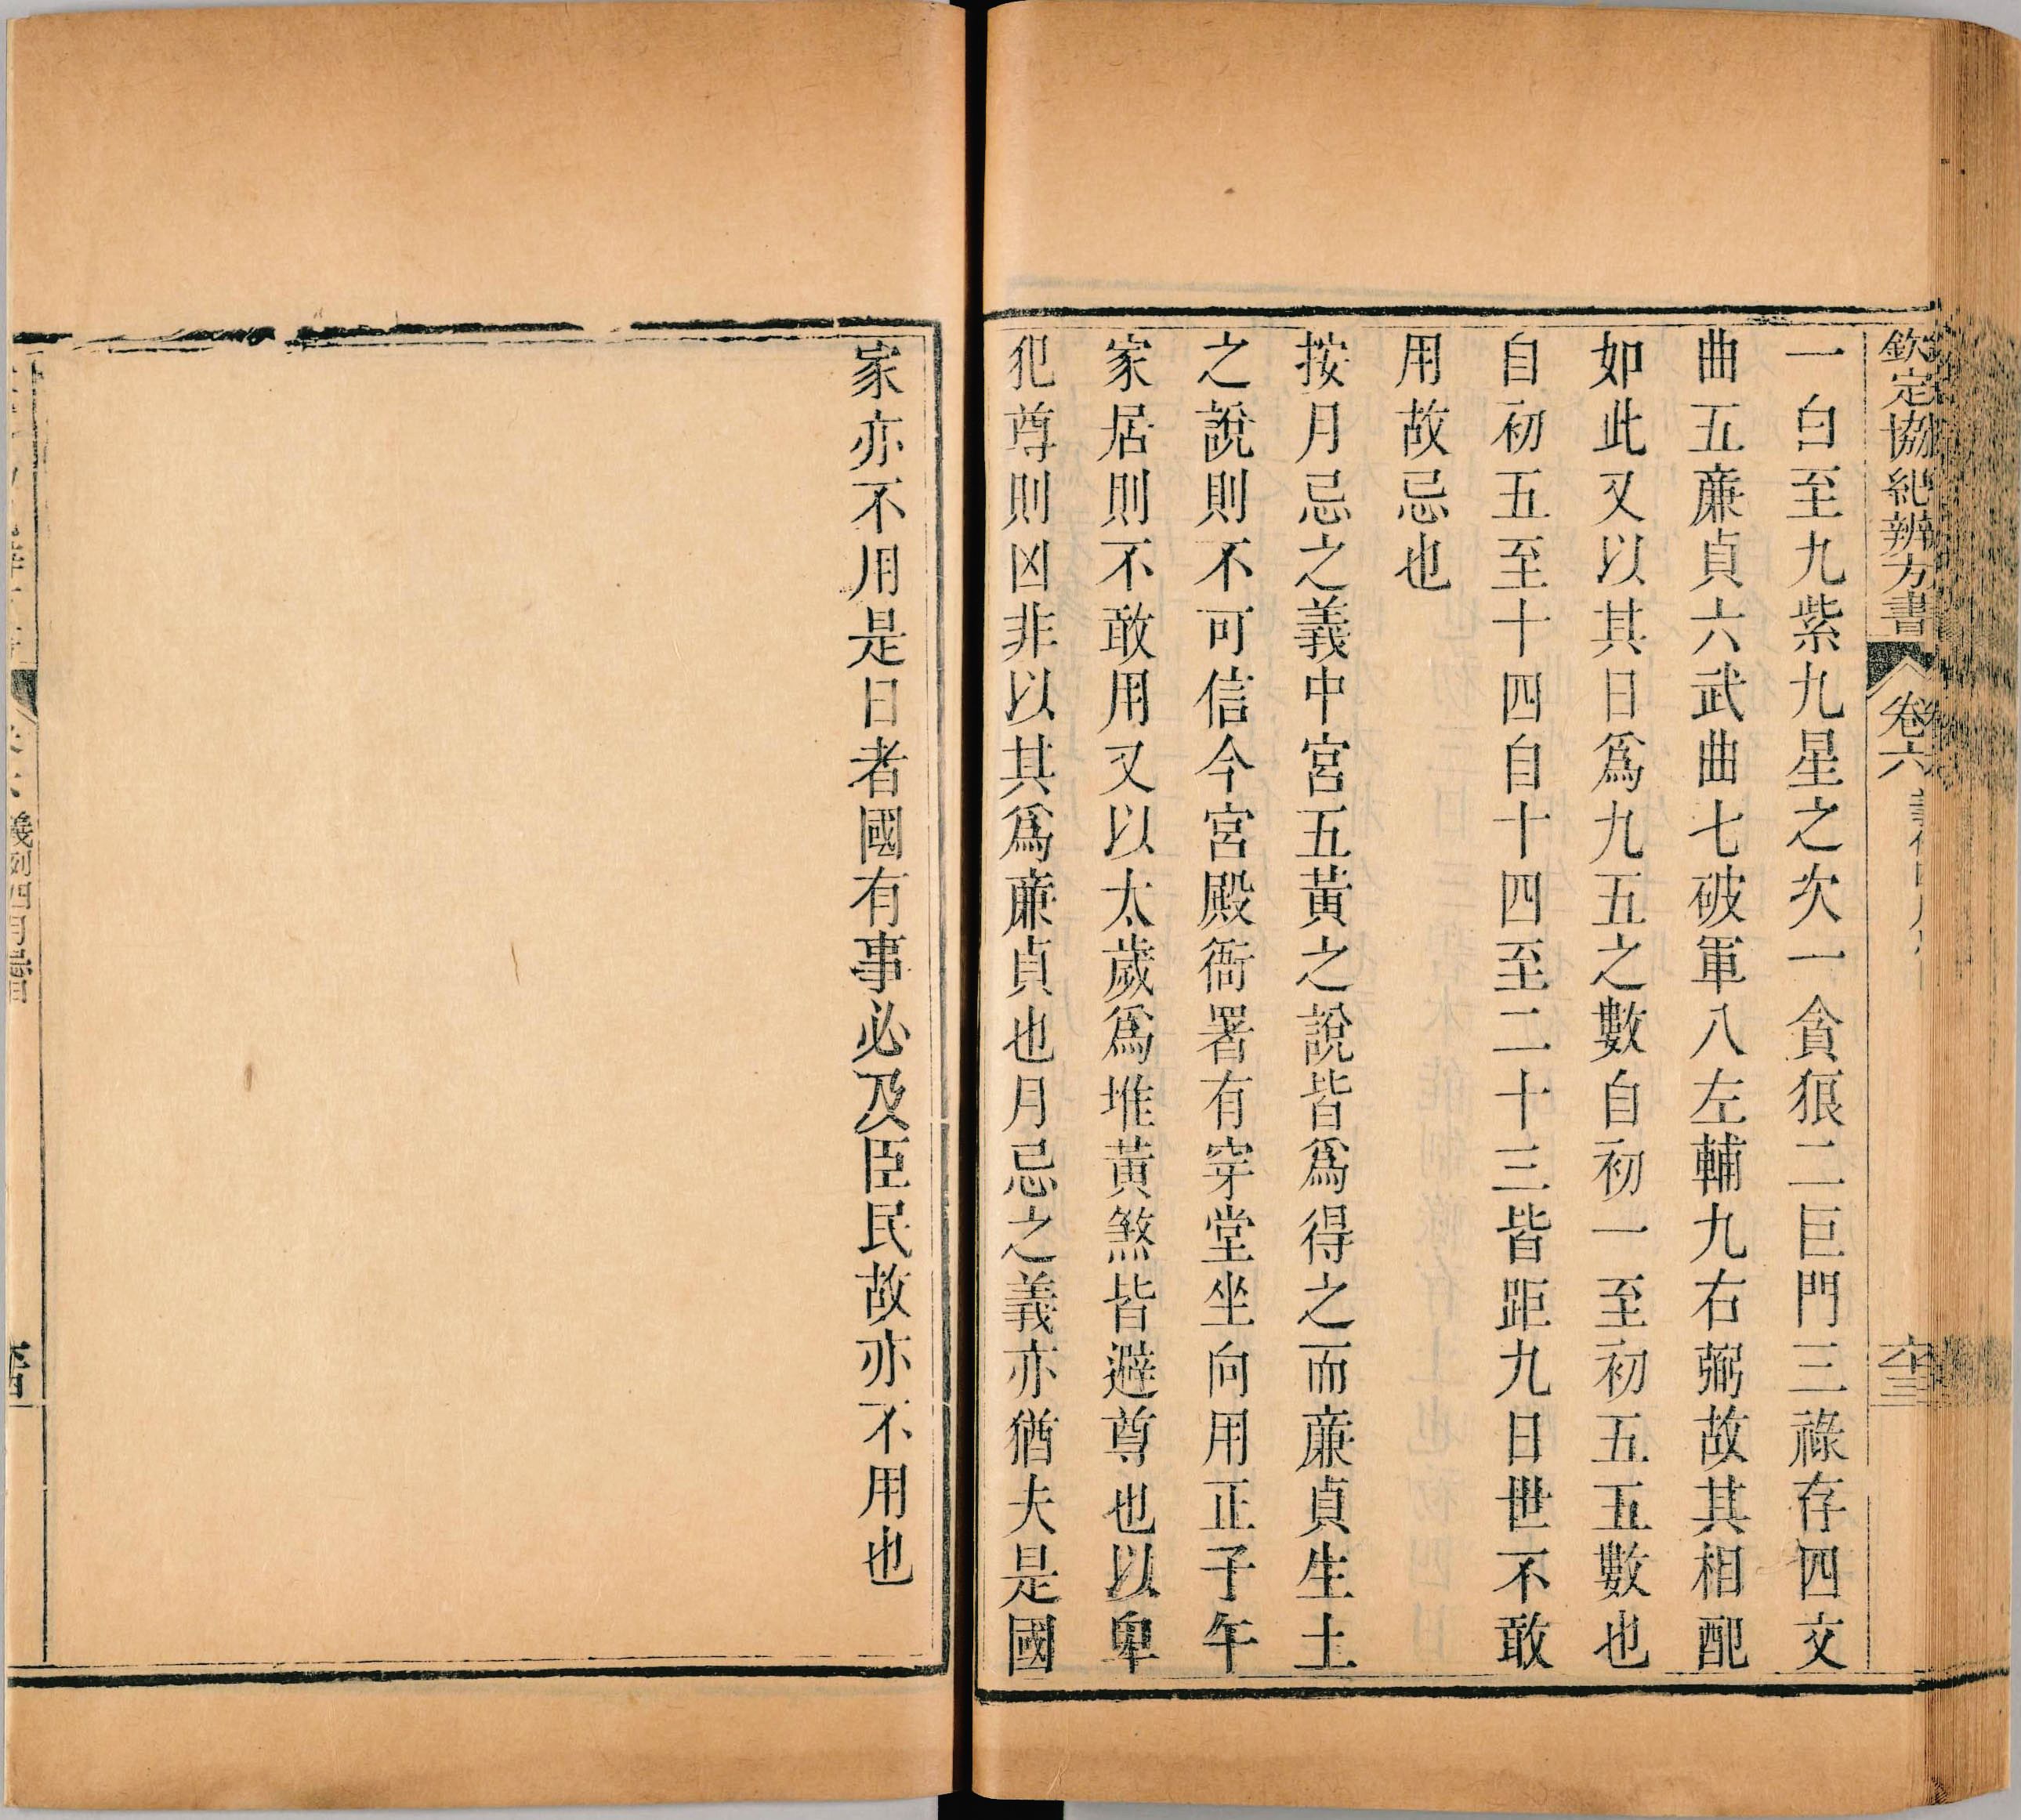 欽定協紀辨方書 卷六 六十三
一白至九紫九星之次一貪狼二巨門三祿存四文
曲五廉貞六武曲七破軍八左輔九右弼故其相配
如此又以其日爲九五之數自初一至初五五數也
自初五至十四自十四至二十三皆距九日世不敢
用故忌也
按月忌之義中宮五黃之說皆爲得之而廉貞生土
之說則不可信今宮殿衙署有穿堂坐向用正子午
家居則不敢用又以太歲爲堆黃煞皆避尊也以卑
犯尊則凶非以其爲廉貞也月忌之義亦猶夫是國
家亦不用是日者國有事必及臣民故亦不用也